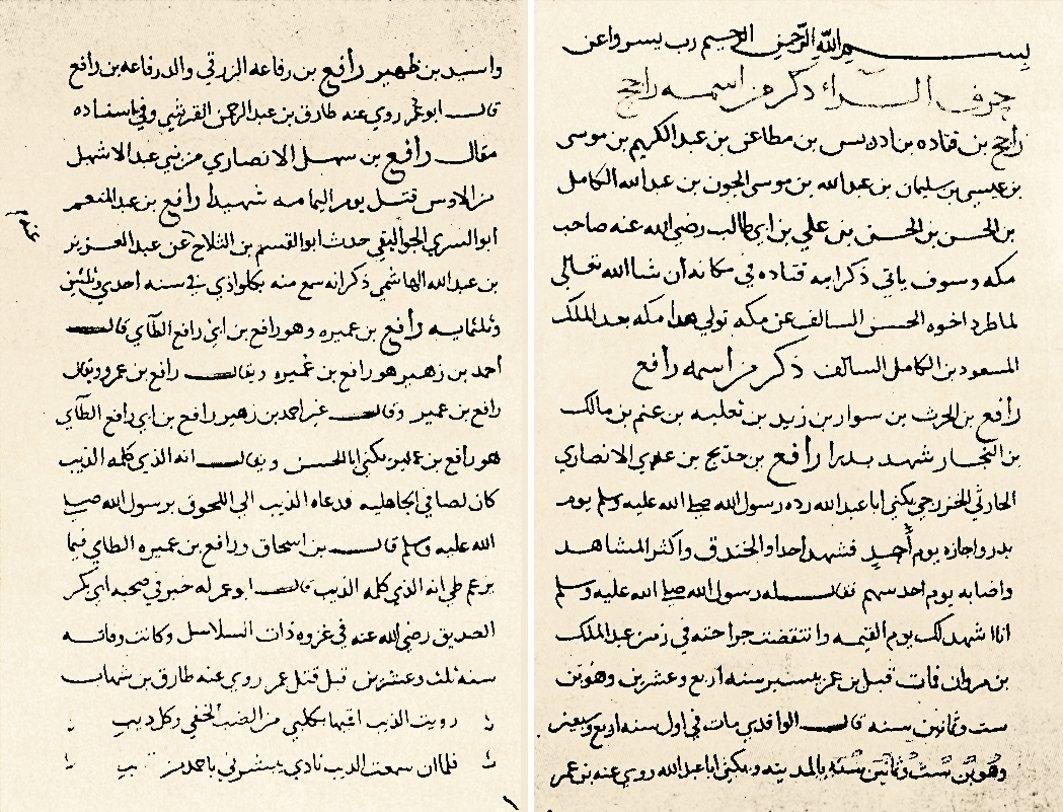 بسم الله الرحمن الرحيم رب يسر واعن
حرف الراء ذكر من اسمه راجح
راجح بن قتاده بن ادريس بن مطاعن بن عبد الكريم بن موسى
بن عيسى بن سليمان بن عبد الله بن موسى الجون بن عبد الله الكامل
بن الحسن بن الحسن بن علي بن ابي طالب رضي الله عنه صاحب
مكه وسوف ياتي ذكر ابيه قتاده في مكانه ان شا الله تعالى
لما طرد اخوه الحسن السالف عن مكه تولي هدا مكه بعد الملك
المسعود بن الكامل السالف ذكر من اسمه رافع
رافع بن الحرث بن سوار بن زيد بن ثعلبه بن غنم بن مالك
بن النجار شهد بدرا رافع بن خديج بن عدي الانصاري
الحارثي الخزرجي يكنى ابا عبد الله رده رسول الله صلى الله عليه وسلم يوم
بدر واجازه يوم أحد فشهد احدا والخندق واكثر المشاهد
واصابه يوم احد سهم فقال له رسول الله صلى الله عليه وسلم
انا اشهد لك يوم القيمه وانتقضت جراحته في زمن عبد الملك
بن مروان فمات قبل بن عمر بيسير سنه اربع وعشرين وهو بن
ست وثمانين سنه قال الواقدي مات في اول سنه اربع وسبعين
وهو بن ست وثمانين سنه بالمدينه ويكنى ابا عبد الله روي عنه بن عمر
واسيد بن ظهير رافع بن رفاعه الزرقي والد رفاعه بن رافع
قال ابو عمر روي عنه طارق بن عبد الرحمن القرشي وفي اسناده
مقال رافع بن سهل الانصاري من بني عبد الاشهل
من الاوس قتل يوم اليمامه شهيدا رافع بن عبد المنعم
ابو السري حدث ابو القسم بن الثلاج عن عبد العزيز
بن عبد الله الهاشمي ذكر انه سمع منه بكلواذي في سنه احدي وثلثين
وثلثمايه رافع بن عميره وهو رافع بن ابي رافع الطآي قال
أحمد بن زهير هو رافع بن عميره ويقال رافع بن عمرو ويقال
رافع بن عمير وقال غير احمد بن زهير رافع بن ابي رافع الطآي
هو رافع بن يكنى ابا الحسن ويقال انه الذي كلمه الذيب
كان لصا في الجاهليه فدعاه الذيب الى اللحوق برسول الله صلى
الله عليه وسلم قال بن اسحاق ورافع بن عميره الطاي فيما
يزعم طي انه الذي كلمه الذيب قال ابو عمر له خبر في صحبه ابي بكر
الصديق رضي الله عنه في غزوه ذات السلاسل وكانت وفاته
سنه ثلث وعشرين قبل قتل عمر روي عنه طارق بن شهاب
رويت الذيب بكلبي من الضب الخفي وكل ديب
فلما ان سمعت الديب نادي يبشرني باحمد من